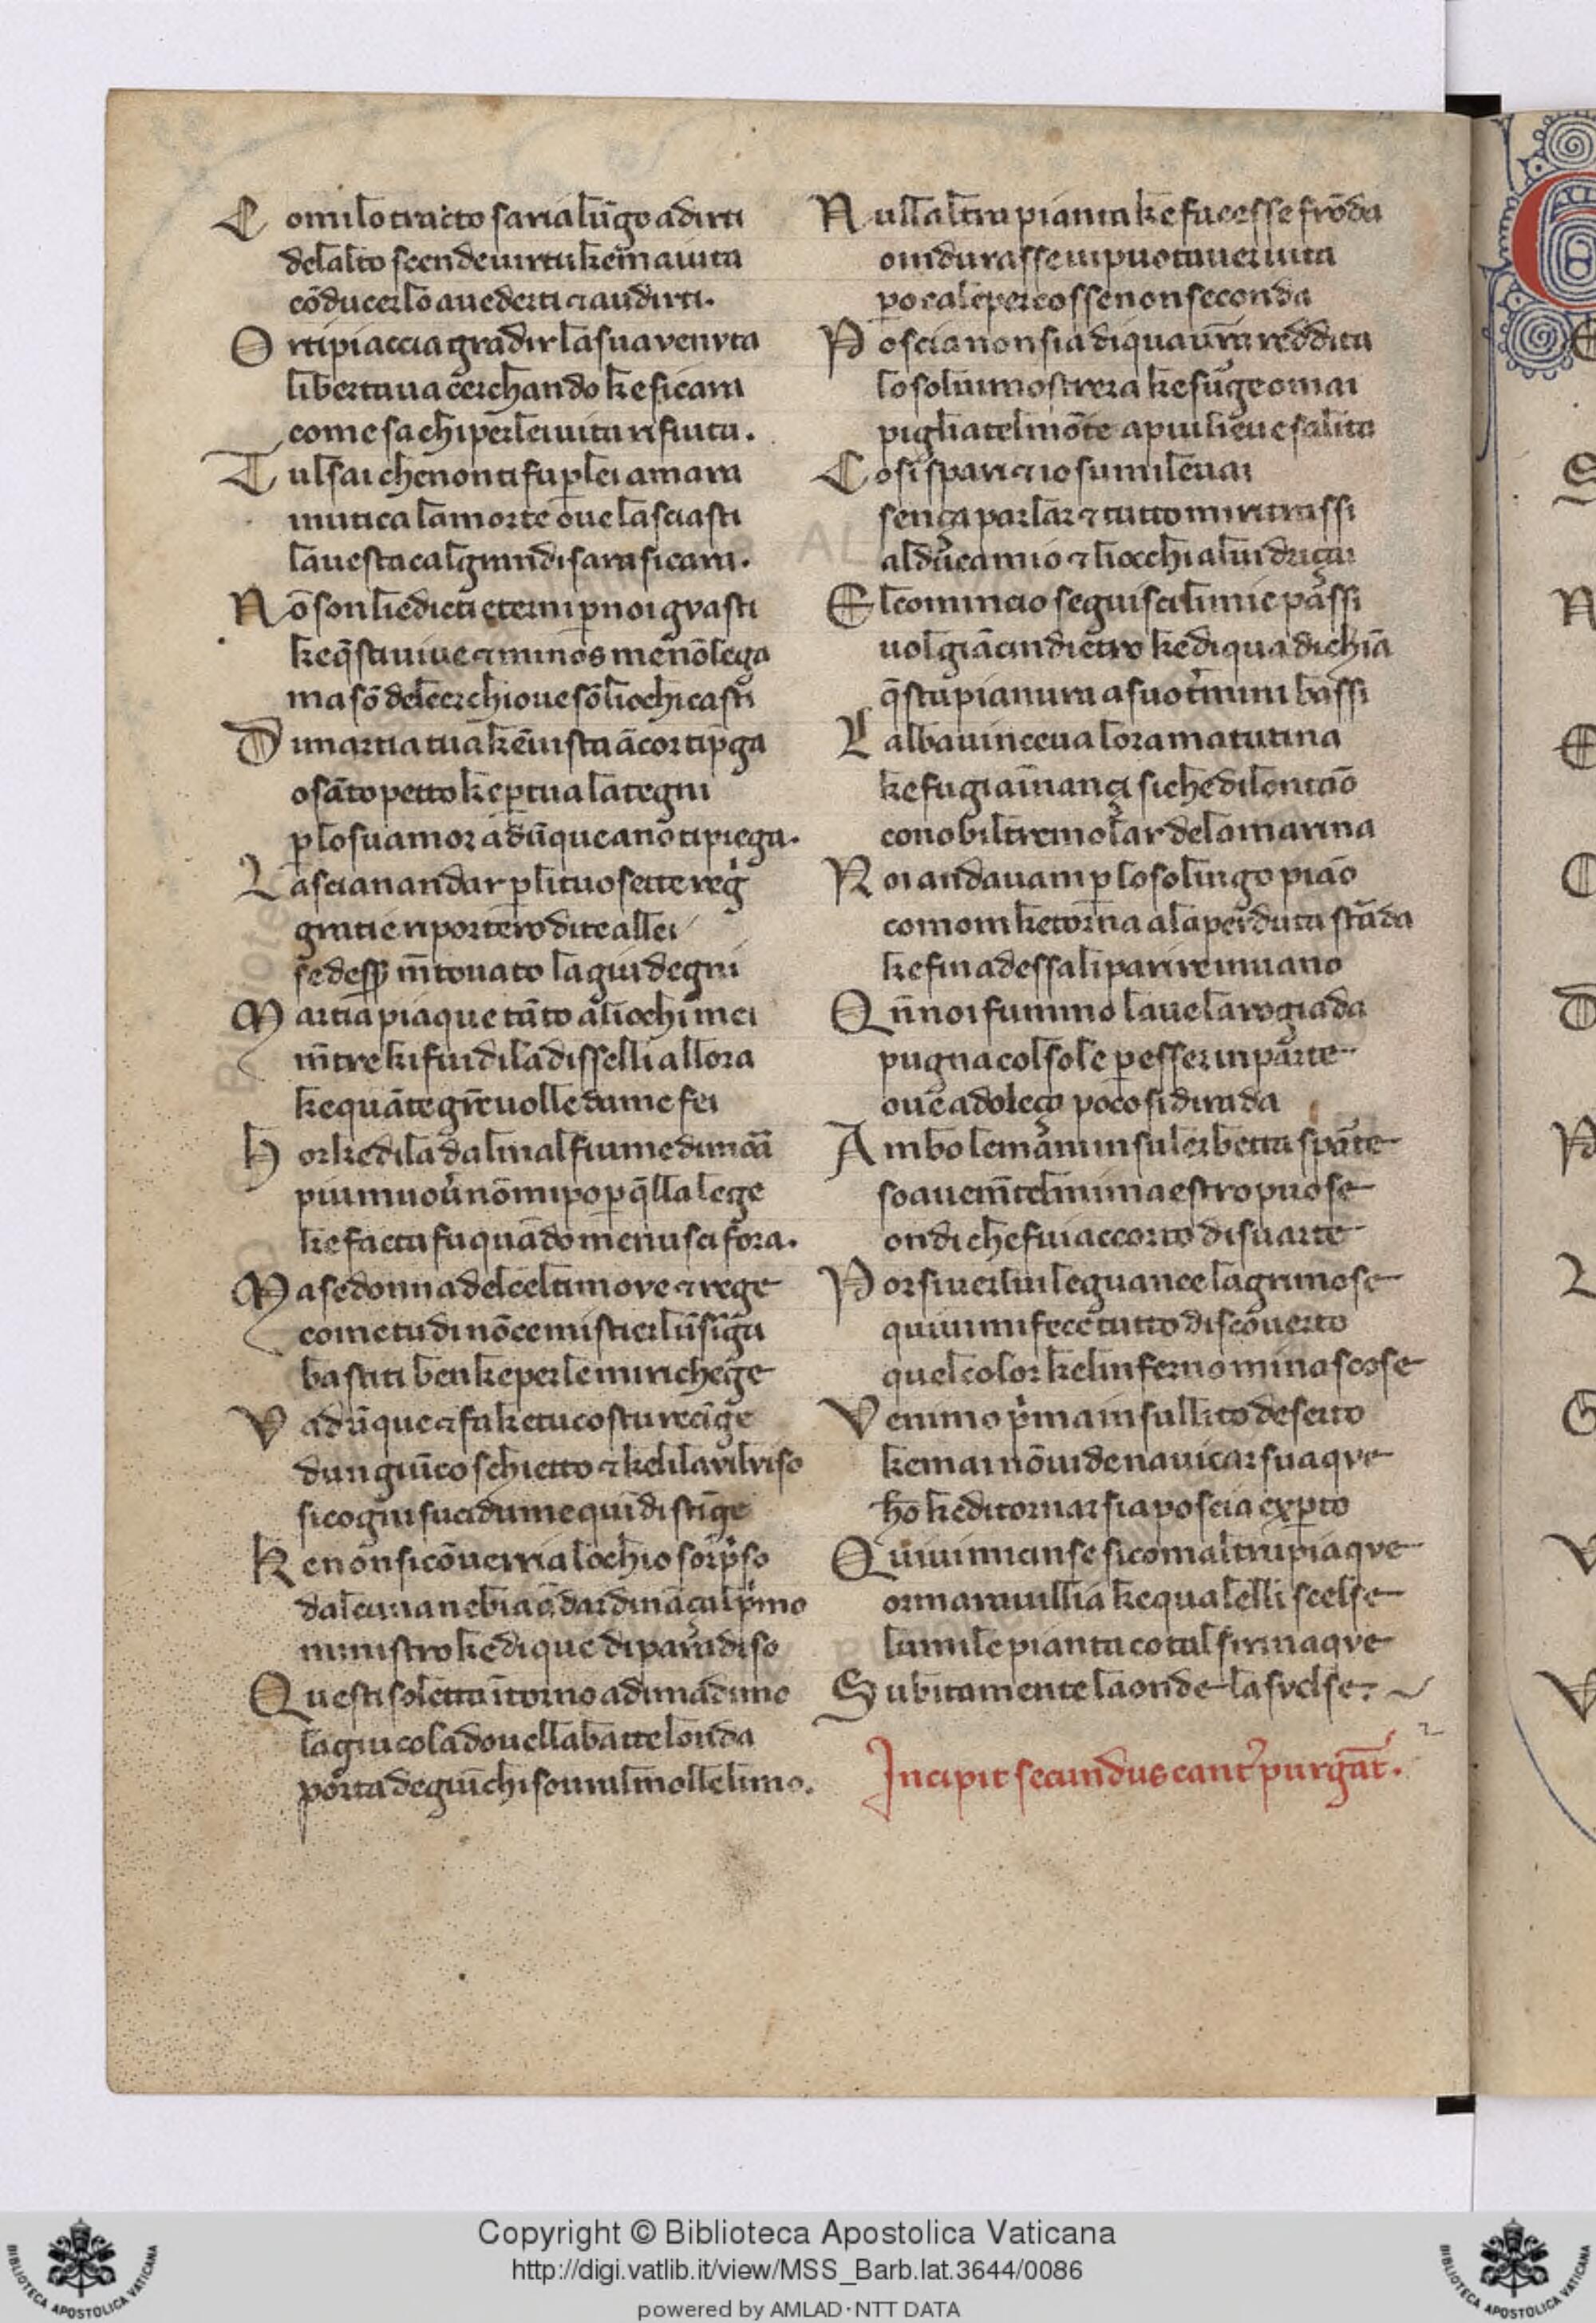 C omilotracto saria lūgo adirti
delalto scende uirtu kem aiuta
cōducerlo auederti ⁊ audirti.
O rti piaccia gradir la sua venvta
liberta ua cerchando ke si cara
come sa chi per lei uita rifiuta.
T ul sai che non ti fu ꝑ lei amara
inutica la morte oue lasciasti
la uesta cal gran di sara si cara.
N ō son li edicti eterni ꝑ noi gvasti
ke q̄sti uiue ⁊ minos me nō lega
ma sō del cerchio oue sō li ochi casti
D i martia tua kē uista ācor ti p̄ga
o sāto petto ke ꝑ tua la tegni
ꝑ lo su amor adūque a noi ti piega.
L ascian andar ꝑ li tuo sette reḡ
gratie riportero di te a llei
se desſ m̄touato la gui degni
M artia piaque tāto a li ochi mei
m̄tre ki fui di la diss elli allora
ke quāte gr̄e uolle da me fei
H or ke di la dal mal fiume dimora
piu muou̓ nō mi po ꝑ q̄lla lege
ke facta fu quādo me n usci fora.
M a se donna del cel ti move ⁊ rege
come tu di nō ce mistier lūsīga
basti ti ben ke per le mi richege
V adūque ⁊ fa ke tu costu recīge
dun giūco schietto ⁊ keli lavi l viso
si cogni sucidume quidi stīge
K e non si cōuerria l ochio sorp̓so
dalcuna nebia ādar dināçi al p̓mo
ministro ke di que di paradiso
Q uesti soletta ītorno ad imad imo
la giu cola dou ella batte londa
porta de giūchi soura l molle limo.
N ull altra pianta ke facesse frōda
o indurasse ui puot auer uita
po cale percosse non seconda
P oscia non sia di qua ur̄a reddita
lo sol ui mosterra ke surge omai
pigliate l mōte a piu lieue salita
C osi spari ⁊ io su mi leuai
sença parlar ⁊ tutto mi ritrassi
al duca mio ⁊ li occhi a lui driçai
E l comincio segui sci li mie passi
uolgiāci in dietro ke di qua dichīa
q̄sta pianura a suo t̓mini bassi
L alba uinceua lora matutina
ke fugia īnançi si che di lontāo
conobi l tremolar de la marina
N oi andauam ꝑ lo solingo piāo
com om ke torna a la perduta strada
ke fin ad essa li par ire in uano
Q n̄ noi fummo la ue la rogiada
pugna col sole ꝑ esser in parte
oue adoleça poco si dirada
A mbo le mani in su lerbetta sparte
soauem̄te l mi maestro puose
ondi che fui accorto di su arte
P orsi uer lui le guance lagrimose
quiui mi fece tutto discouerto
quel color ke linferno mi nascose
V enimmo p̓ma in su llito deserto
ke mai nō uide nauicar su aqve
ho ke di tornar sia poscia exꝑto
Q uiui mi cinse si com altrui piaqve
o marauillia ke qual elli scelse
lumile pianta cotal si rinaqve
S ubitamente la onde la svelse.
Incipit secundus cant̓ purgat̄.
2
Copyright © Biblioteca Apostolica Vaticana
http://digi.vatlib.it/view/MSS_Barb.lat.3644/0086
powered by AMLAD·NTT DATA